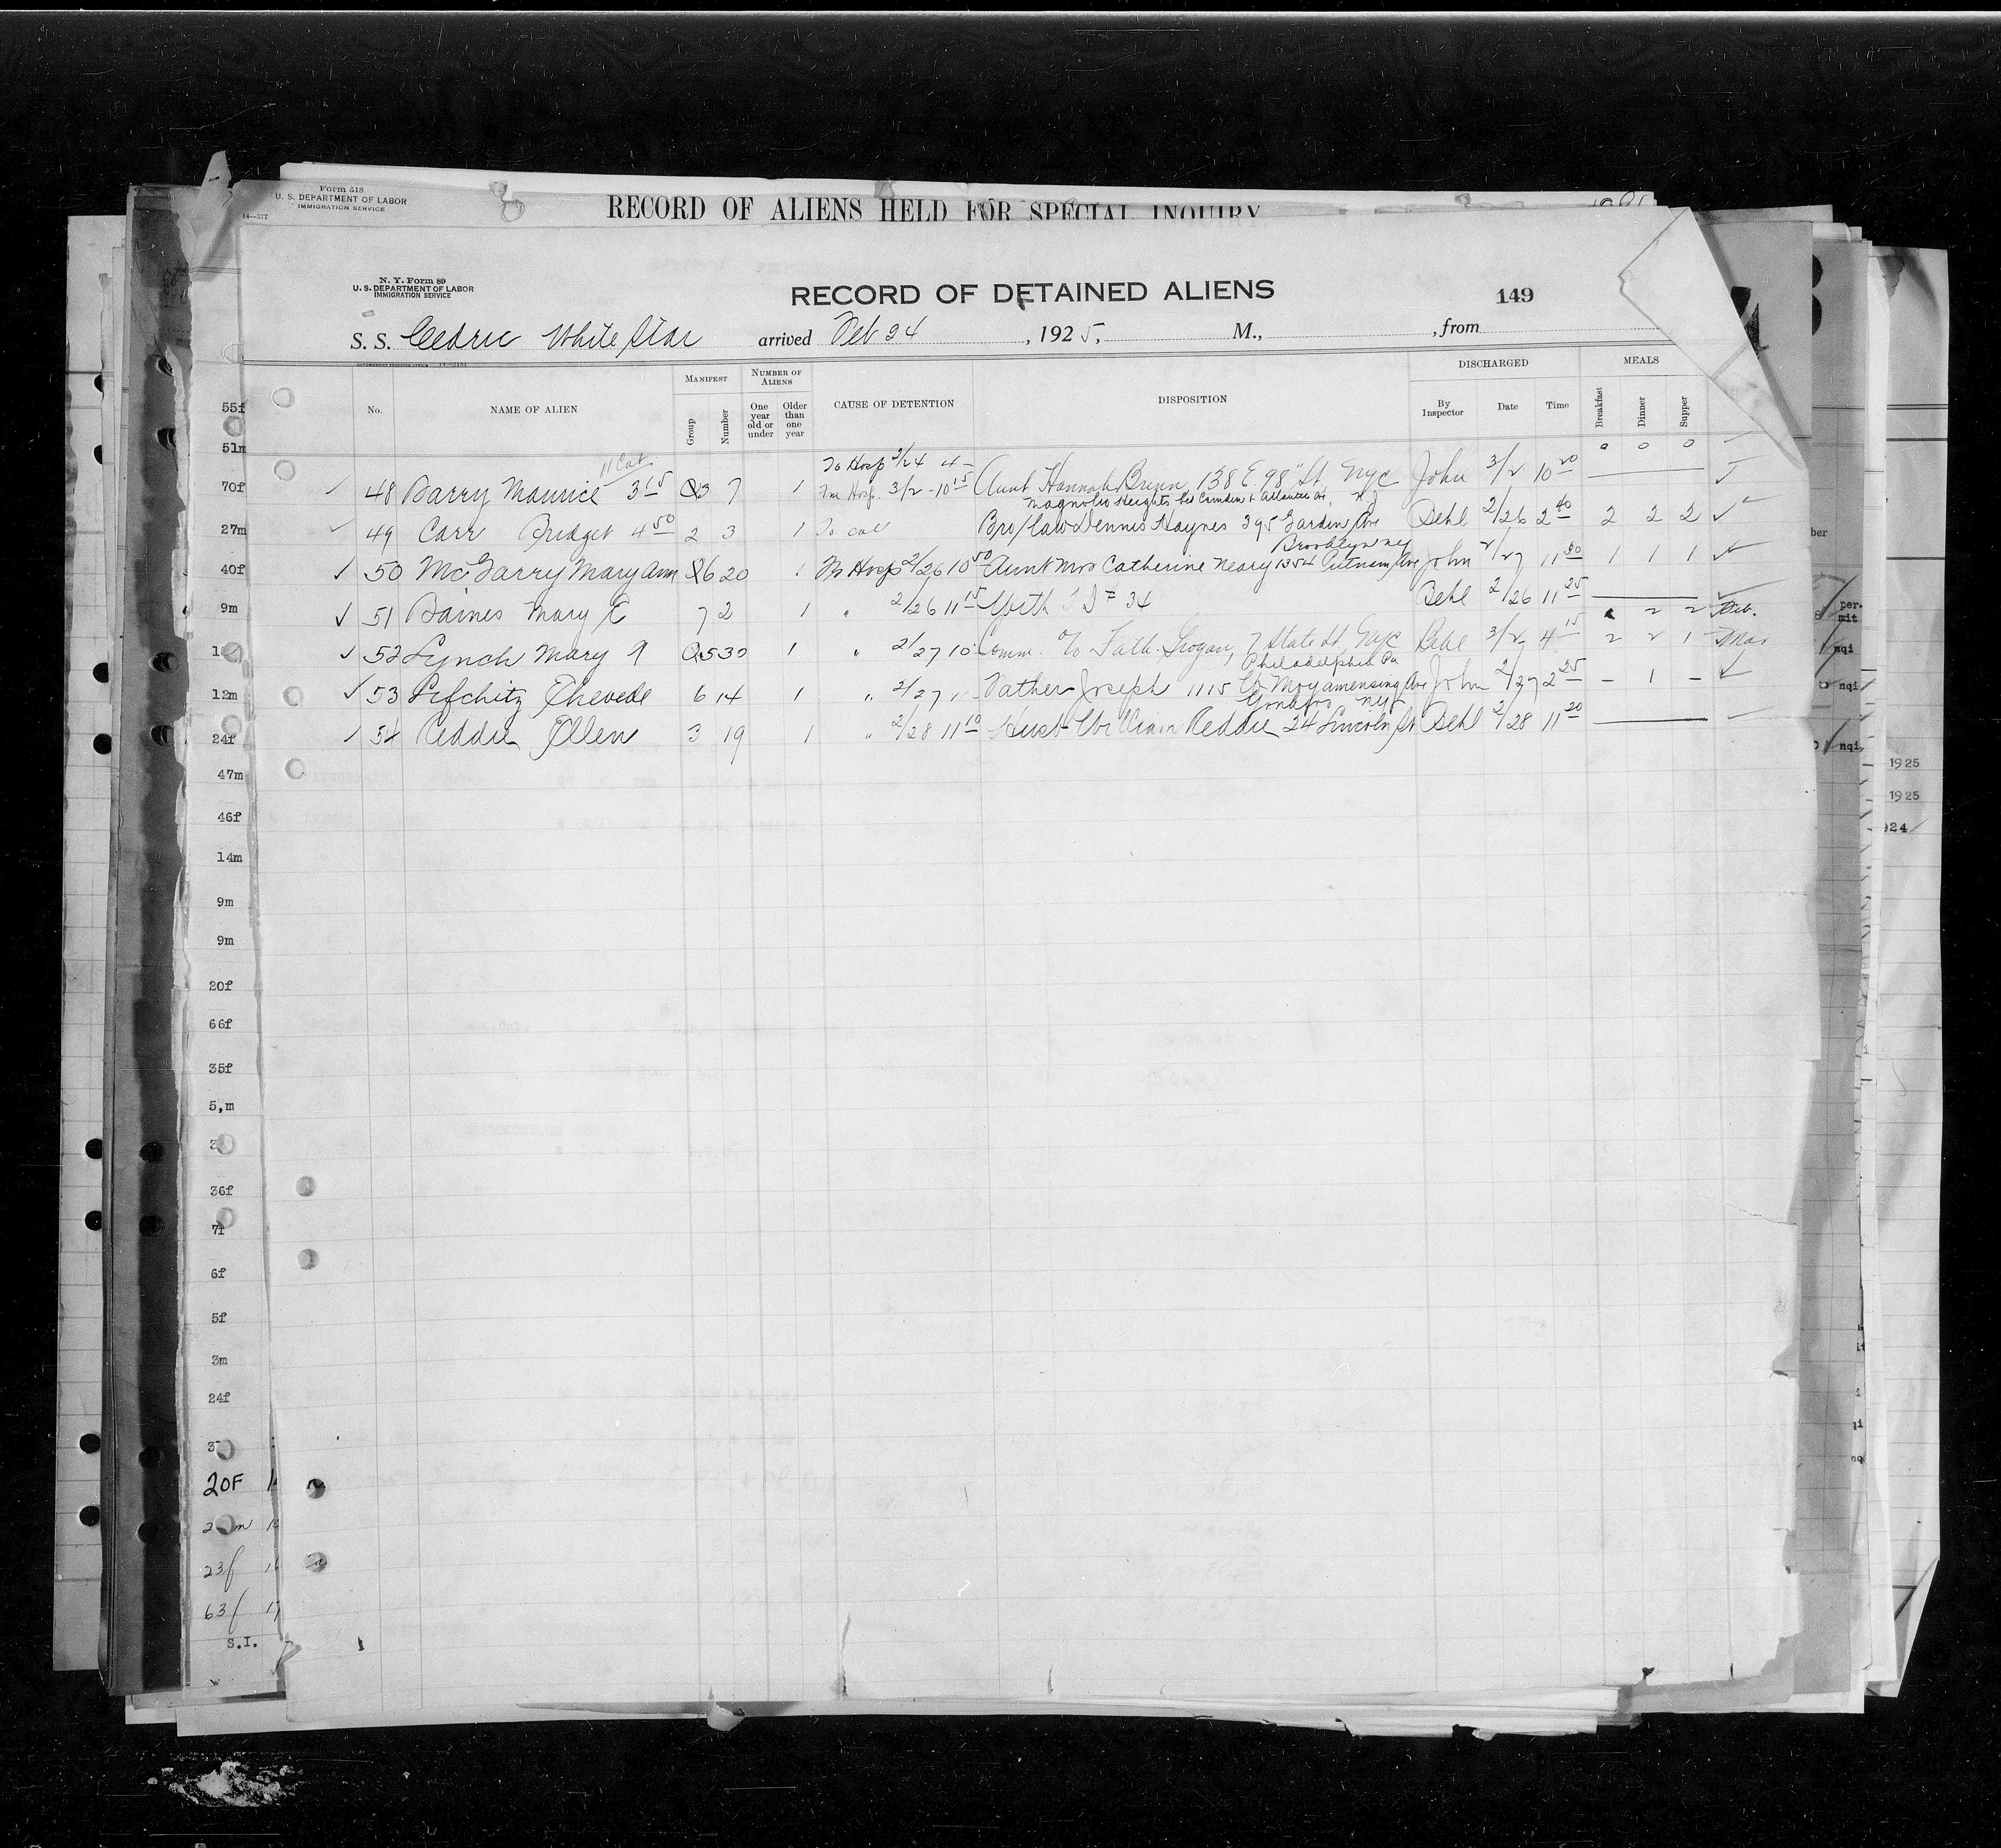 Form 518
U. S. DEPARTMENT OF LABOR
IMMIGRATION SERVICE
14—377
RECORD OF ALIENS HELD FOR SPECIAL INQUIRY
N. Y. Form 89
U. S. DEPARTMENT OF LABOR
IMMIGRATION SERVICE
RECORD OF DETAINED ALIENS
149
S. S. Cedric White Star arrived Feb 24, 1925, M., , from
No.
NAME OF ALIEN
MANIFEST
Group
Number
NUMBER OF ALIENS
One year old or under
Older than one year
CAUSE OF DETENTION
DISPOSITION
DISCHARGED
By Inspector
Date
Time
MEALS
Breakfast
Dinner
Supper
11 Cat. To Hosp 2/24 4 – 0 0 0
48 Barry Maurice 3 15 Q3 7 1 Fm Hosp. 3/2 - 10 15 Aunt Hannah Brunn, 138 E. 98" St, NYC John 3/2 10 20
Magnolia Heights bet Camden & Atlantic Av. NJ
49 Carr Bridget 4 50 2 3 1 To call Bro/law Dennis Haynes 395 Garden Ave Behl 2/26 2 40 2 2 2
Brooklyn NY
50 McGarry Mary Ann Q6 20 1 Fm Hosp 2/26 10 50 Aunt Mrs Catherine Neary 1354 Putnam Ave John 2/27 11 30 1 1 1
51 Baines Mary E 7 2 1 " 2/26 11 15 With I D # 34 Behl 2/26 11 25
2 2 Feb.
52 Lynch Mary A Q5 30 1 " 2/27 10 Comm. c/o Fath. Grogan, 7 State St, NYC Behl 3/2 4 15 2 2 1 Mar
Philadelphia Pa
53 Lifchitz Chevede 6 14 1 " 2/27 Father Joseph 1115 W. Moyamensing Ave John 2/27 2 25 – 1 –
Yonkers NY
54 Reddie Ellen 3 19 1 " 2/28 11 10 Husb William Reddie 24 Lincoln St Behl 2/28 11 20
55f
51m
70f
27m
40f
9m
12m
24f
47m
46f
14m
9m
9m
20f
66f
35f
5,m
36f
7f
6f
5f
3m
24f
20F
23f
63f 17
S.I.
per.
mit
nqi
nqi
nqi
1925
1925
924